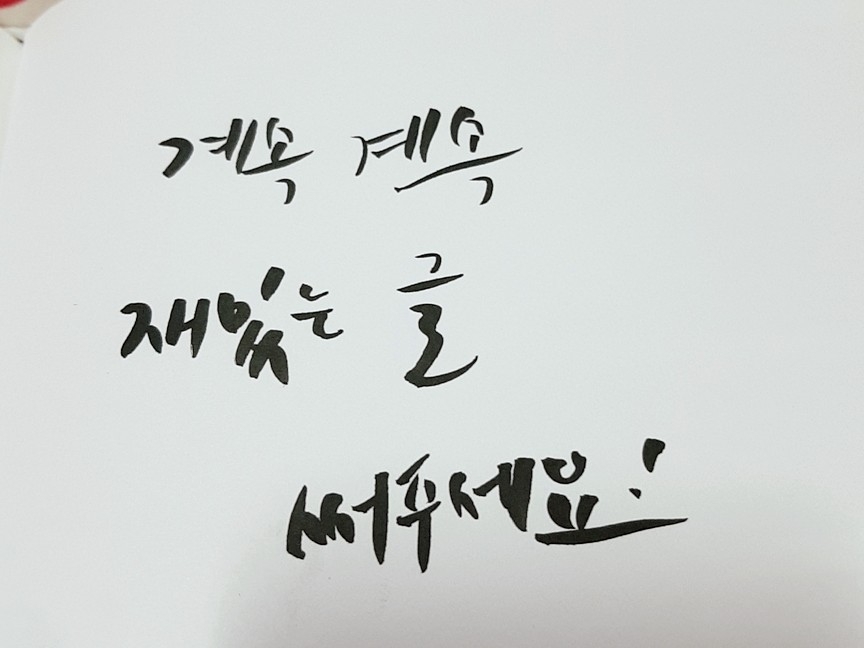 계속 계속
재밌는 글
써주세요!